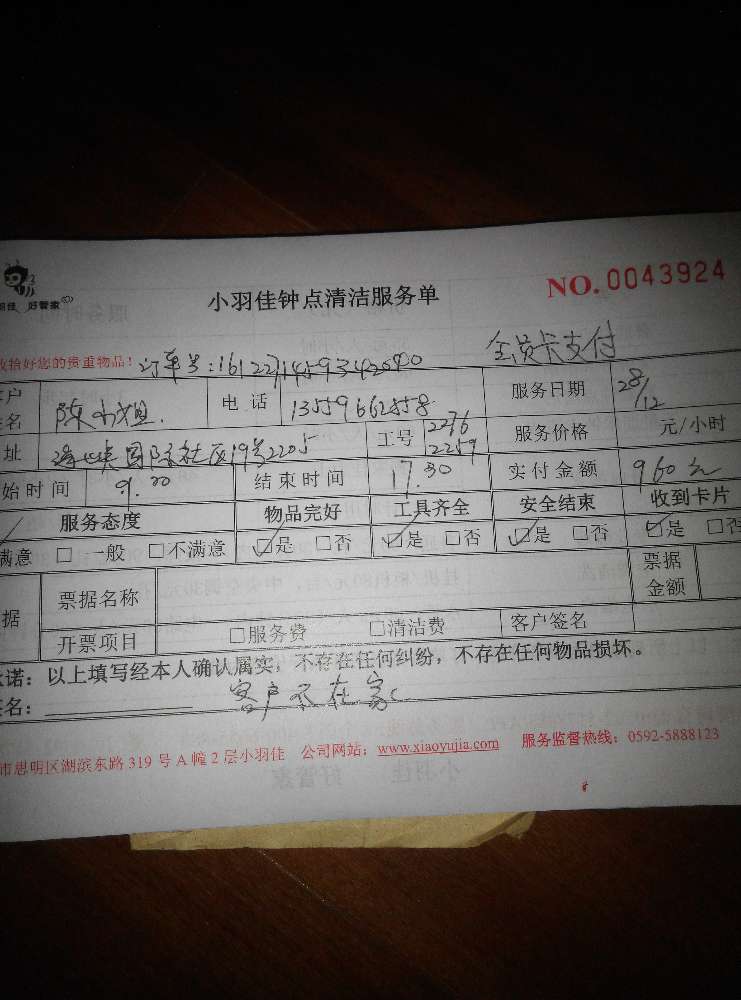 小羽佳钟点清洁服务单
NO.0043924
好管家
收拾好您的贵重物品！订单号： 会员卡支付
户 名 陈小姐. 电话 13559662558. 服务日期 28/12
址 国际社区19号2205 工号 2276 2259 服务价格 元/小时
始时间 9.00 结束时间 17.30 实付金额 960元
服务态度 物品完好 工具齐全 安全结束 收到卡片
满意 □一般 □不满意 ☑是 □否 ☑是 □否 ☑是 □否 ☑是 □否
据 票据名称 票据金额
开票项目 □服务费 □清洁费 客户签名
诺：以上填写经本人确认属实，不存在任何纠纷，不存在任何物品损坏。
名： 客户不在家
市思明区湖滨东路319号A幢2层小羽佳 公司网站：www.xiaoyujia.com 服务监督热线：0592-5888123